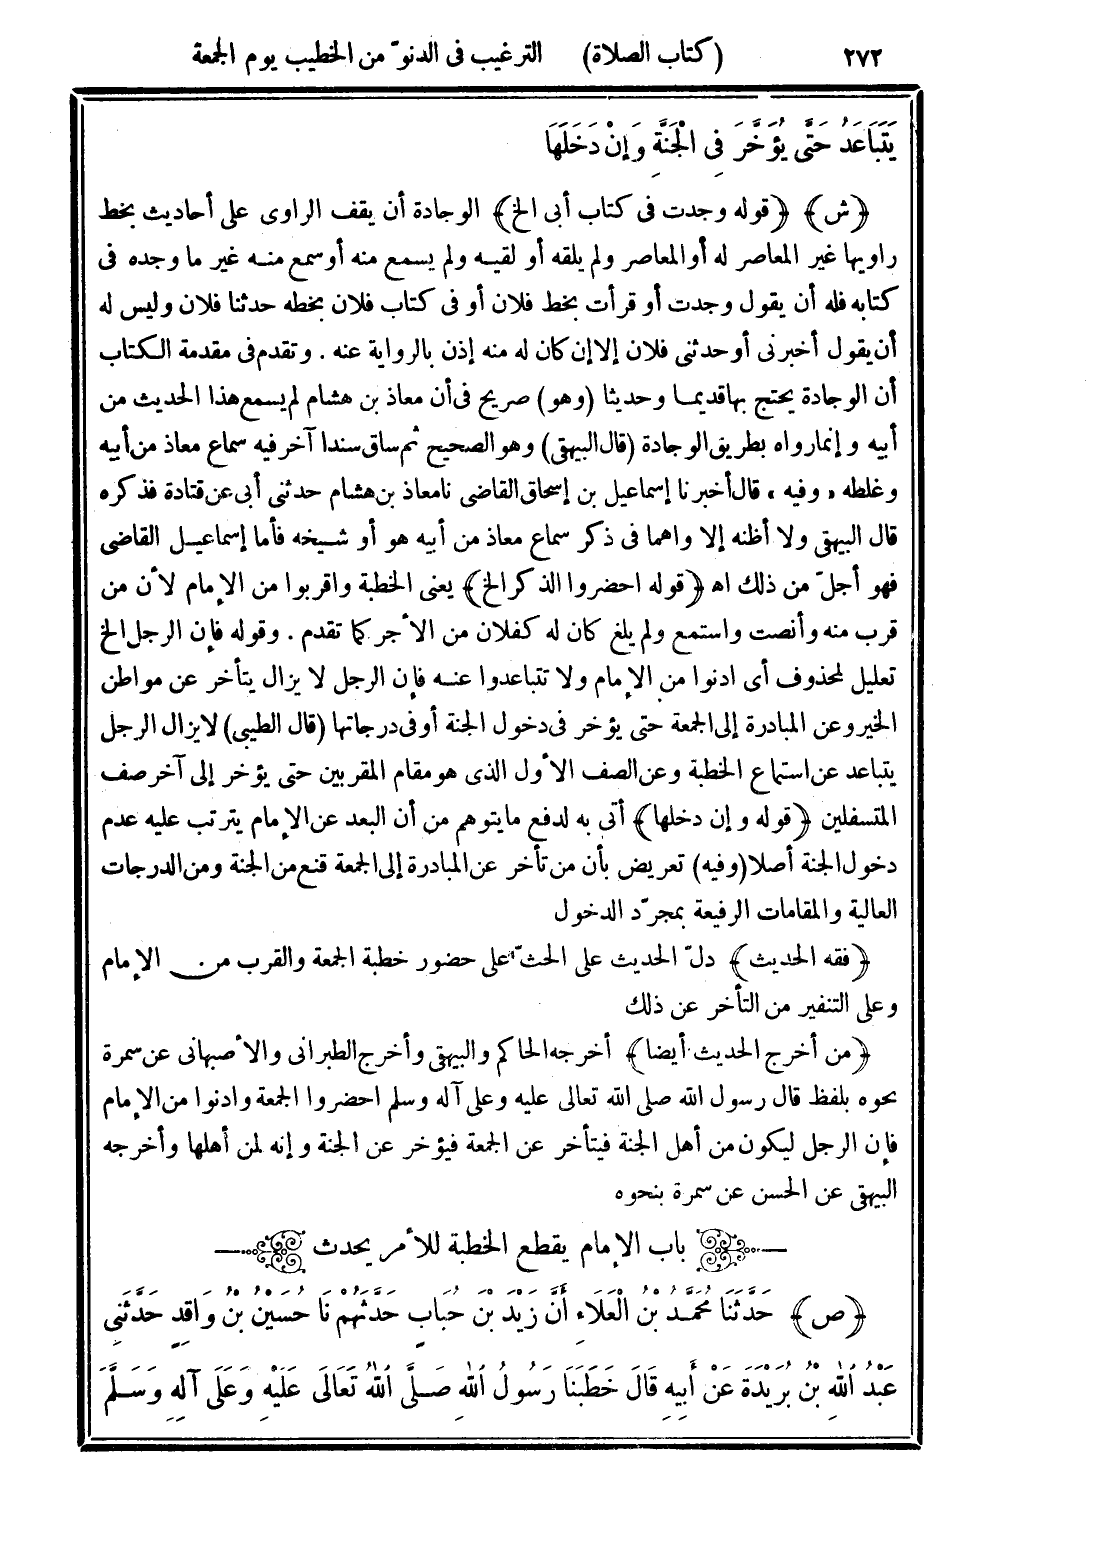 ٢٧٢ (كتاب الصلاة) الترغيب فى الدنوّ من الخطيب يوم الجمعة
يَتَبَاعَدُ حَتَّى يُؤَخَّرَ فِى الْجَنَّةِ وَإِنْ دَخَلَهَا
﴿ش﴾ ﴿قوله وجدت فى كتاب أبى الخ﴾ الوجادة أن يقف الراوى على أحاديث بخط
راويها غير المعاصر له أو المعاصر ولم يلقه أو لقيه ولم يسمع منه أو سمع منه غير ما وجده فى
كتابه فله أن يقول وجدت أو قرأت بخط فلان أو فى كتاب فلان بخطه حدثنا فلان وليس له
أن يقول أخبرنى أو حدثنى فلان إلا إن كان له منه إذن بالرواية عنه . وتقدم فى مقدمة الكتاب
أن الوجادة يحتج بها قديما وحديثا (وهو) صريح فى أن معاذ بن هشام لم يسمع هذا الحديث من
أبيه وإنما رواه بطريق الوجادة (قال البيهقى) وهو الصحيح ثم ساق سندا آخر فيه سماع معاذ من أبيه
وغلطه ، وفيه ، قال أخبرنا إسماعيل بن إسحاق القاضى نا معاذ بن هشام حدثنى أبى عن قتادة فذكره
قال البيهقى ولا أظنه إلا واهما فى ذكر سماع معاذ من أبيه هو أو شيخه فأما إسماعيل القاضى
فهو أجلّ من ذلك اه ﴿قوله احضروا الذكر الخ﴾ يعنى الخطبة واقربوا من الإمام لأن من
قرب منه وأنصت واستمع ولم يلغ كان له كفلان من الأجر كما تقدم . وقوله فإن الرجل الخ
تعليل لمحذوف أى ادنوا من الإمام ولا تتباعدوا عنه فإن الرجل لا يزال يتأخر عن مواطن
الخير وعن المبادرة إلى الجمعة حتى يؤخر فى دخول الجنة أو فى درجاتها (قال الطيبى) لا يزال الرجل
يتباعد عن استماع الخطبة وعن الصف الأول الذى هو مقام المقربين حتى يؤخر إلى آخر صف
المتسفلين ﴿قوله وإن دخلها﴾ أتى به لدفع ما يتوهم من أن البعد عن الإمام يترتب عليه عدم
دخول الجنة أصلا (وفيه) تعريض بأن من تأخر عن المبادرة إلى الجمعة قنع من الجنة ومن الدرجات
العالية والمقامات الرفيعة بمجرّد الدخول
﴿فقه الحديث﴾ دلّ الحديث على الحثّ على حضور خطبة الجمعة والقرب من الإمام
وعلى التنفير من التأخر عن ذلك
﴿من أخرج الحديث أيضا﴾ أخرجه الحاكم والبيهقى وأخرج الطبرانى والأصبهانى عن سمرة
نحوه بلفظ قال رسول الله صلى الله تعالى عليه وعلى آله وسلم احضروا الجمعة وادنوا من الإمام
فإن الرجل ليكون من أهل الجنة فيتأخر عن الجمعة فيؤخر عن الجنة وإنه لمن أهلها وأخرجه
البيهقى عن الحسن عن سمرة بنحوه
باب الإمام يقطع الخطبة للأمر يحدث
﴿ص﴾ حَدَّثَنَا مُحَمَّدُ بْنُ الْعَلَاءِ أَنَّ زَيْدَ بْنَ حُبَابٍ حَدَّثَهُمْ نَا حُسَيْنُ بْنُ وَاقِدٍ حَدَّثَنِى
عَبْدُ اللهِ بْنُ بُرَيْدَةَ عَنْ أَبِيهِ قَالَ خَطَبَنَا رَسُولُ اللهِ صَلَّى اللهُ تَعَالَى عَلَيْهِ وَعَلَى آلِهِ وَسَلَّمَ